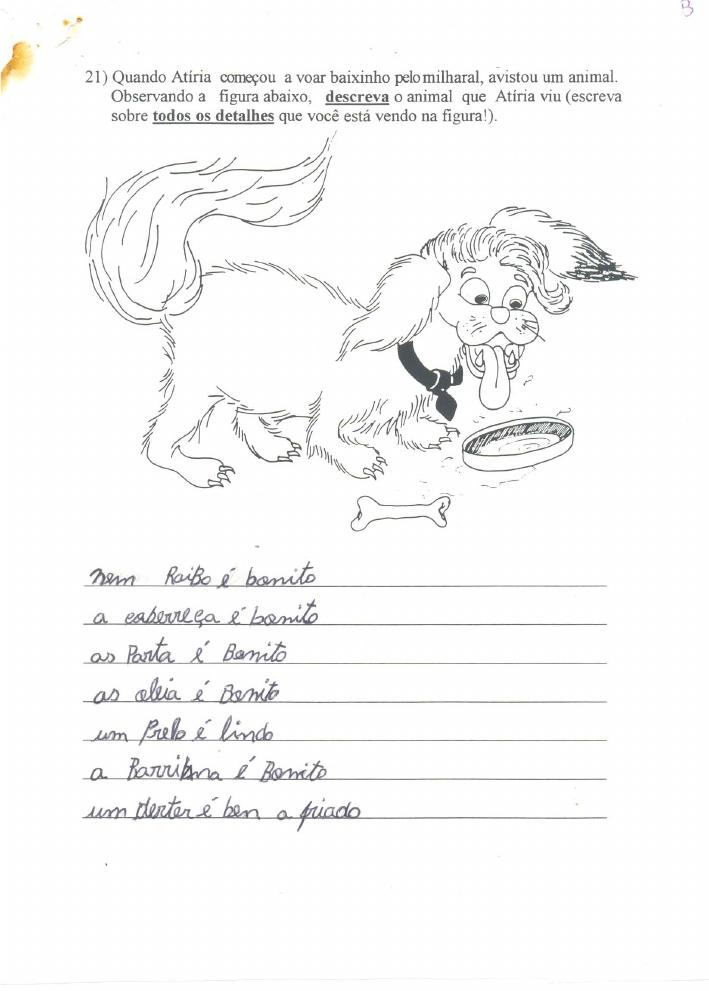 B
21) Quando Atíria começou a voar baixinho pelo milharal, avistou um animal.
Observando a figura abaixo, descreva o animal que Atíria viu (escreva
sobre todos os detalhes que você está vendo na figura!).
nem RaiBo é bonito
a caberreça é bonito
as Parta é Bonito
as oleia é Bonito
um Prelo é lindo
a é Bonito
um derter é ben a friado